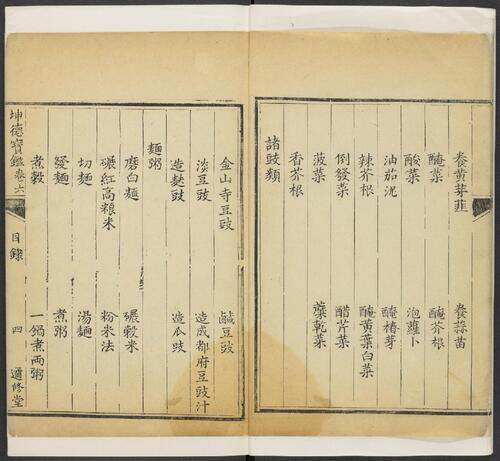 養黃芽韮 養蒜苗
醃菜 醃芥根
酸菜 泡蘿卜
油茄泥 醃椿芽
辣芥根 醃黃葉白菜
倒發菜 醋芹菜
菠菜 蘪乾菜
香芥根
諸豉類
金山寺豆豉 鹹豆豉
淡豆豉 造成都府豆豉汁
造麩豉 造瓜豉
麵粥
磨白麵 碾穀米
碾紅高粮米 粉米法
切麵 湯麵
發麵 煮粥
煮穀 一鍋煮兩粥
坤德寶鑑卷六 目錄 四 適修堂